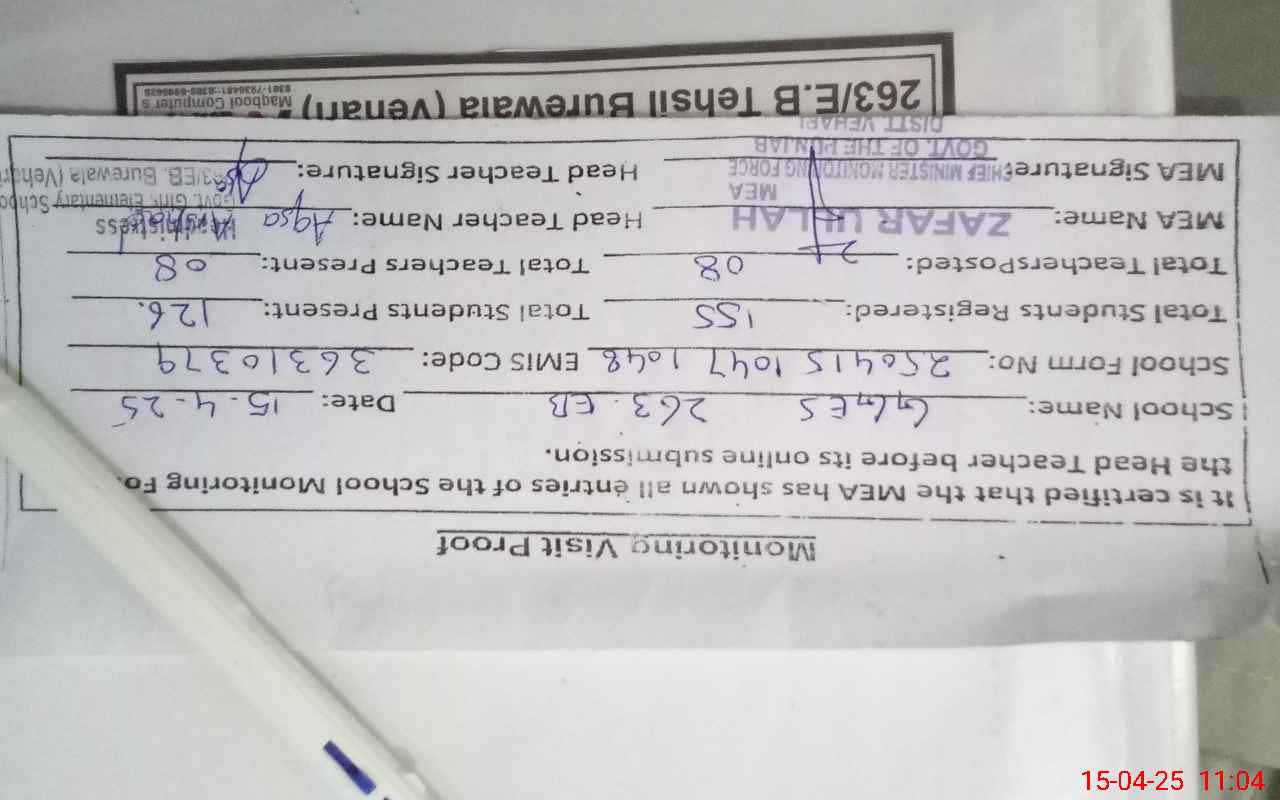 Monitoring Visit Proof
It is certified that the MEA has shown all entries of the School Monitoring Fo
the Head Teacher before its online submission.
School Name: GGES 263.EB Date: 15-4-25
School Form No: 250415 1047 1048 EMIS Code: 36310379
Total Students Registered: 155 Total Students Present: 126.
Total TeachersPosted: 08 Total Teachers Present: 08
MEA Name: ZAFAR ULLAH Head Teacher Name: Aqsa Arshad
MEA
Headmistress
Govt. Girls Elementary School
MEA Signature: Head Teacher Signature:
CHIEF MINISTER MONITORING FORCE
263/EB. Burewala (Vehari
GOVT. OF THE PUNJAB
DISTT. VEHARI
263/E.B Tehsil Burewala (Vehari)
Maqbool Computer's
15-04-25 11:04